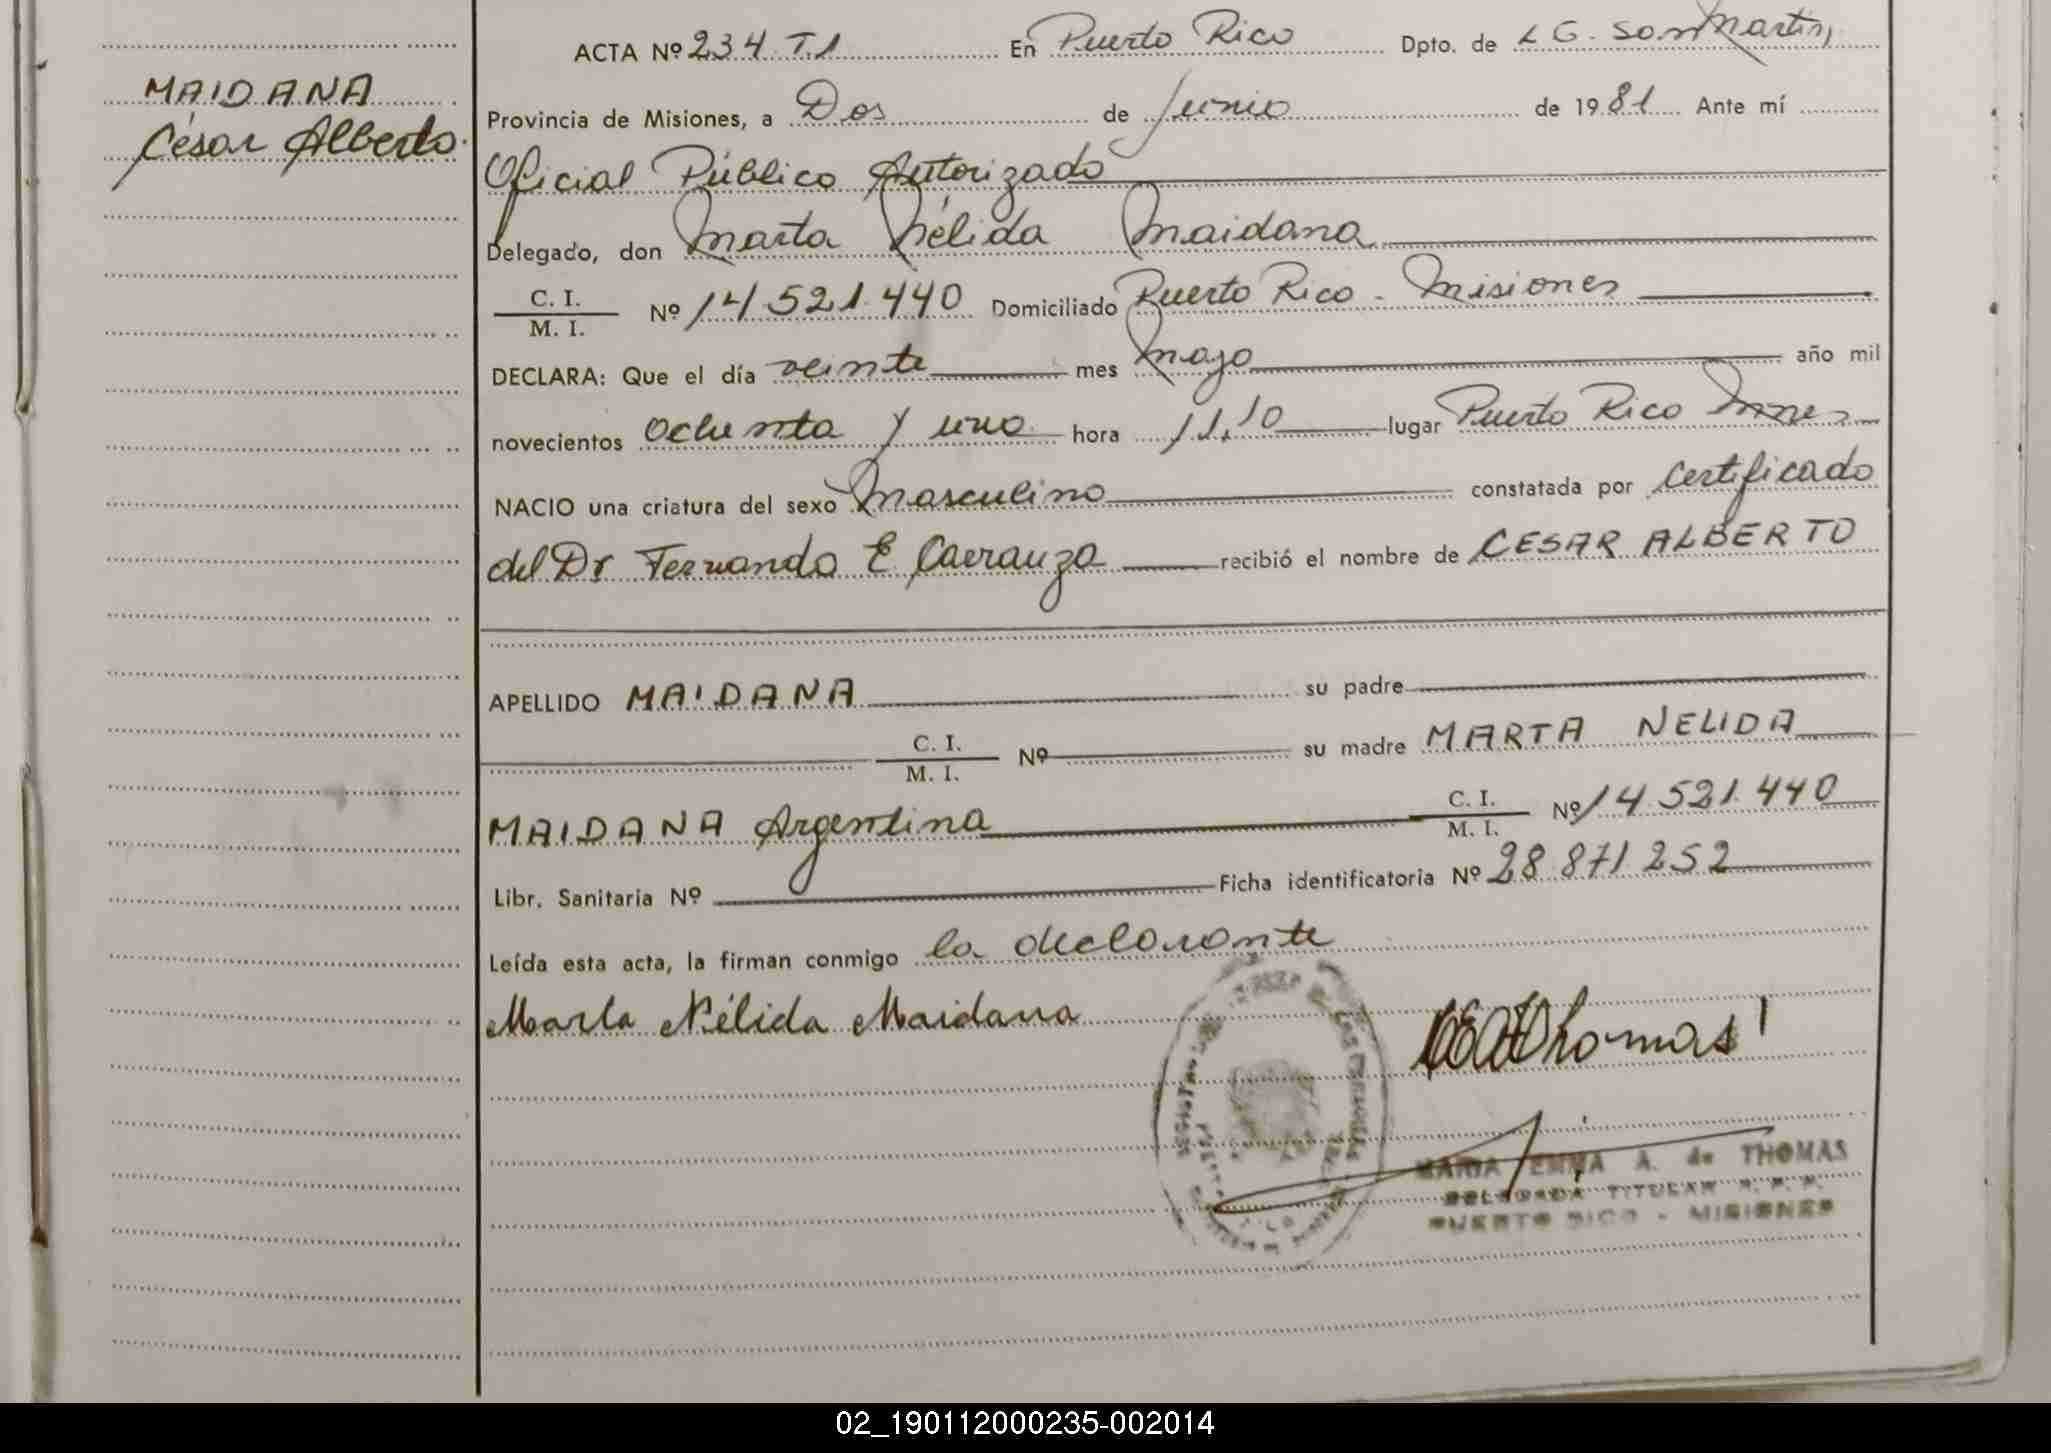 MAIDANA
César Alberto.
ACTA Nº 234 T.1 En Puerto Rico Dpto. de L G. San Martín,
Provincia de Misiones, a Dos de Junio de 1981 Ante mí
Oficial Público Autorizado
Delegado, don Marta Nélida Maidana
C. I.
M. I. Nº 14.521.440 Domiciliado Puerto Rico - Misiones
DECLARA: Que el día veinte mes mayo año mil
novecientos ochenta y uno hora 11,10 lugar Puerto Rico Mnes
NACIO una criatura del sexo Masculino constatada por certificado
del Dr Fernando E Carranza recibió el nombre de CESAR ALBERTO
APELLIDO MAIDANA su padre
C. I.
M. I. Nº su madre MARTA NELIDA
MAIDANA Argentina C. I.
M. I. Nº 14.521.440
Libr. Sanitaria Nº Ficha identificatoria Nº 28.871.252
Leída esta acta, la firman conmigo la declarante
Marta Nélida Maidana
Thomas
MARIA EMMA A. de THOMAS
DELEGADA TITULAR R. P. P.
PUERTO RICO - MISIONES
02_190112000235-002014